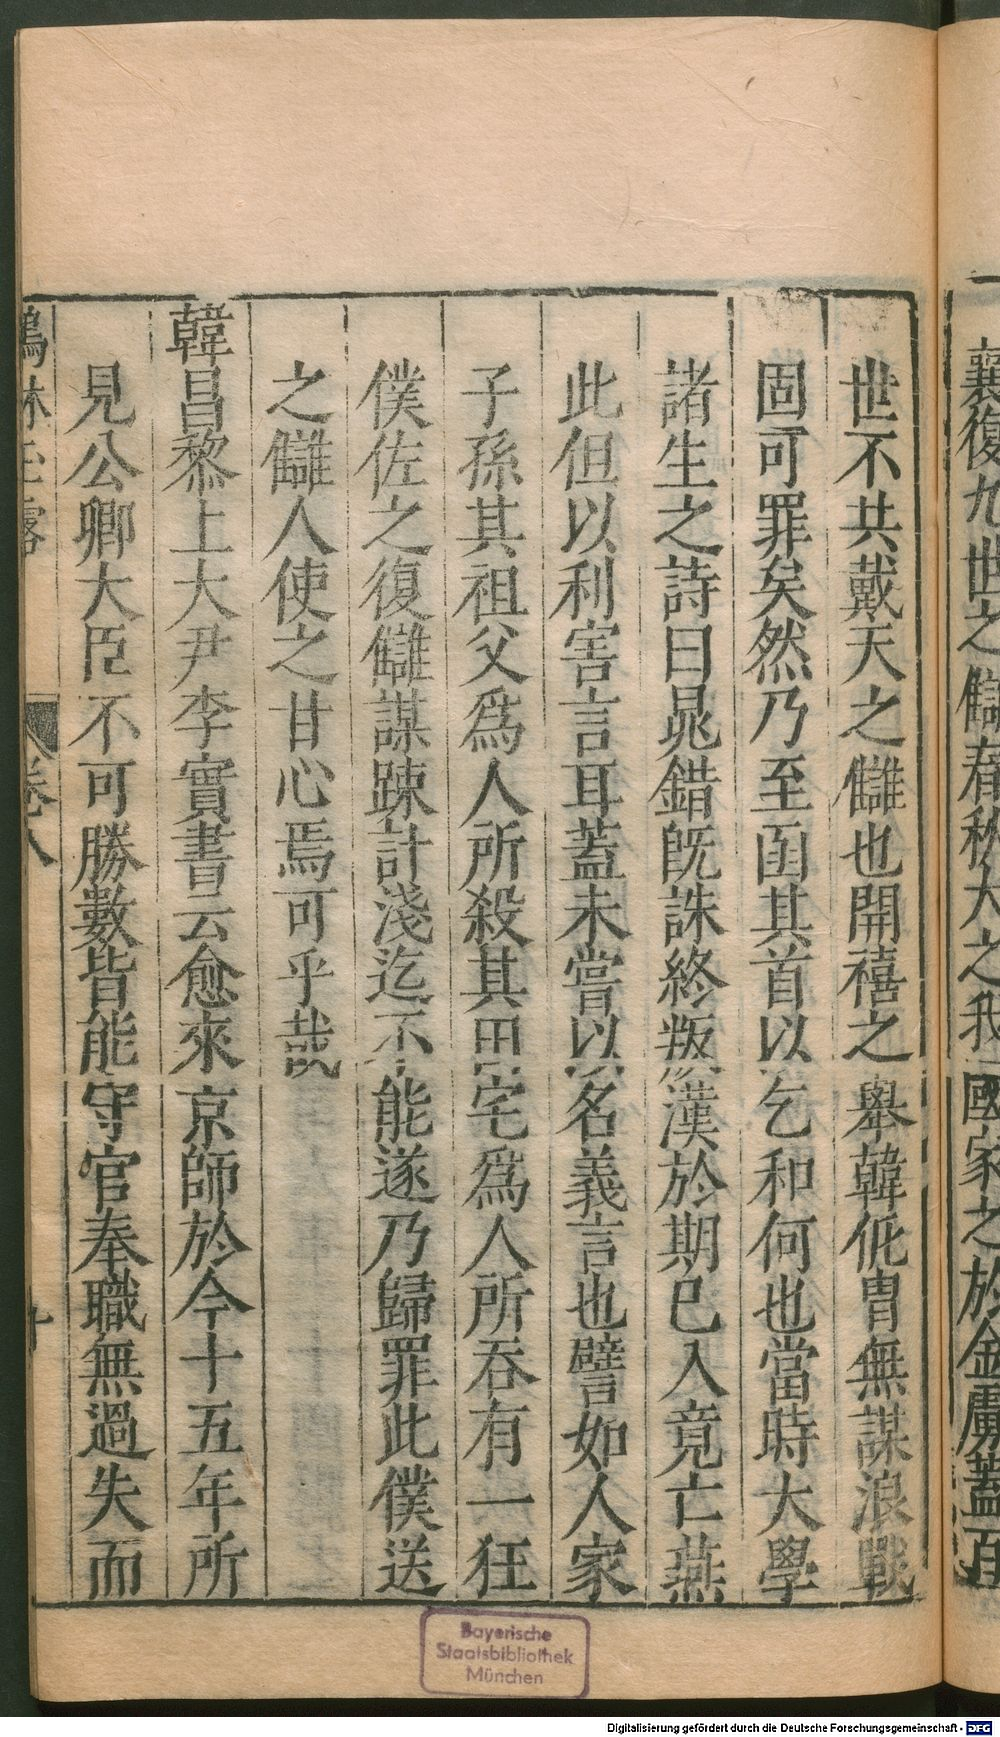 襄復九世之讎春秋大之我國家之於金虜蓋百
世不共戴天之讎也開禧之舉韓侂冑無謀浪戰
固可罪矣然乃至函其首以乞和何也當時大學
諸生之詩曰晁錯旣誅終叛漢於期已入竟亡燕
此但以利害言耳蓋未嘗以名義言也譬如人家
子孫其祖父爲人所殺其田宅爲人所吞有一狂
僕佐之復讎謀踈計淺迄不能遂乃歸罪此僕送
之讎人使之甘心焉可乎哉
韓昌黎上大尹李實書云愈來京師於今十五年所
見公卿大臣不可勝數皆能守官奉職無過失而
鶴林玉露
卷八
Bayerische
Staatsbibliothek
München
Digitalisierung gefördert durch die Deutsche Forschungsgemeinschaft - DFG